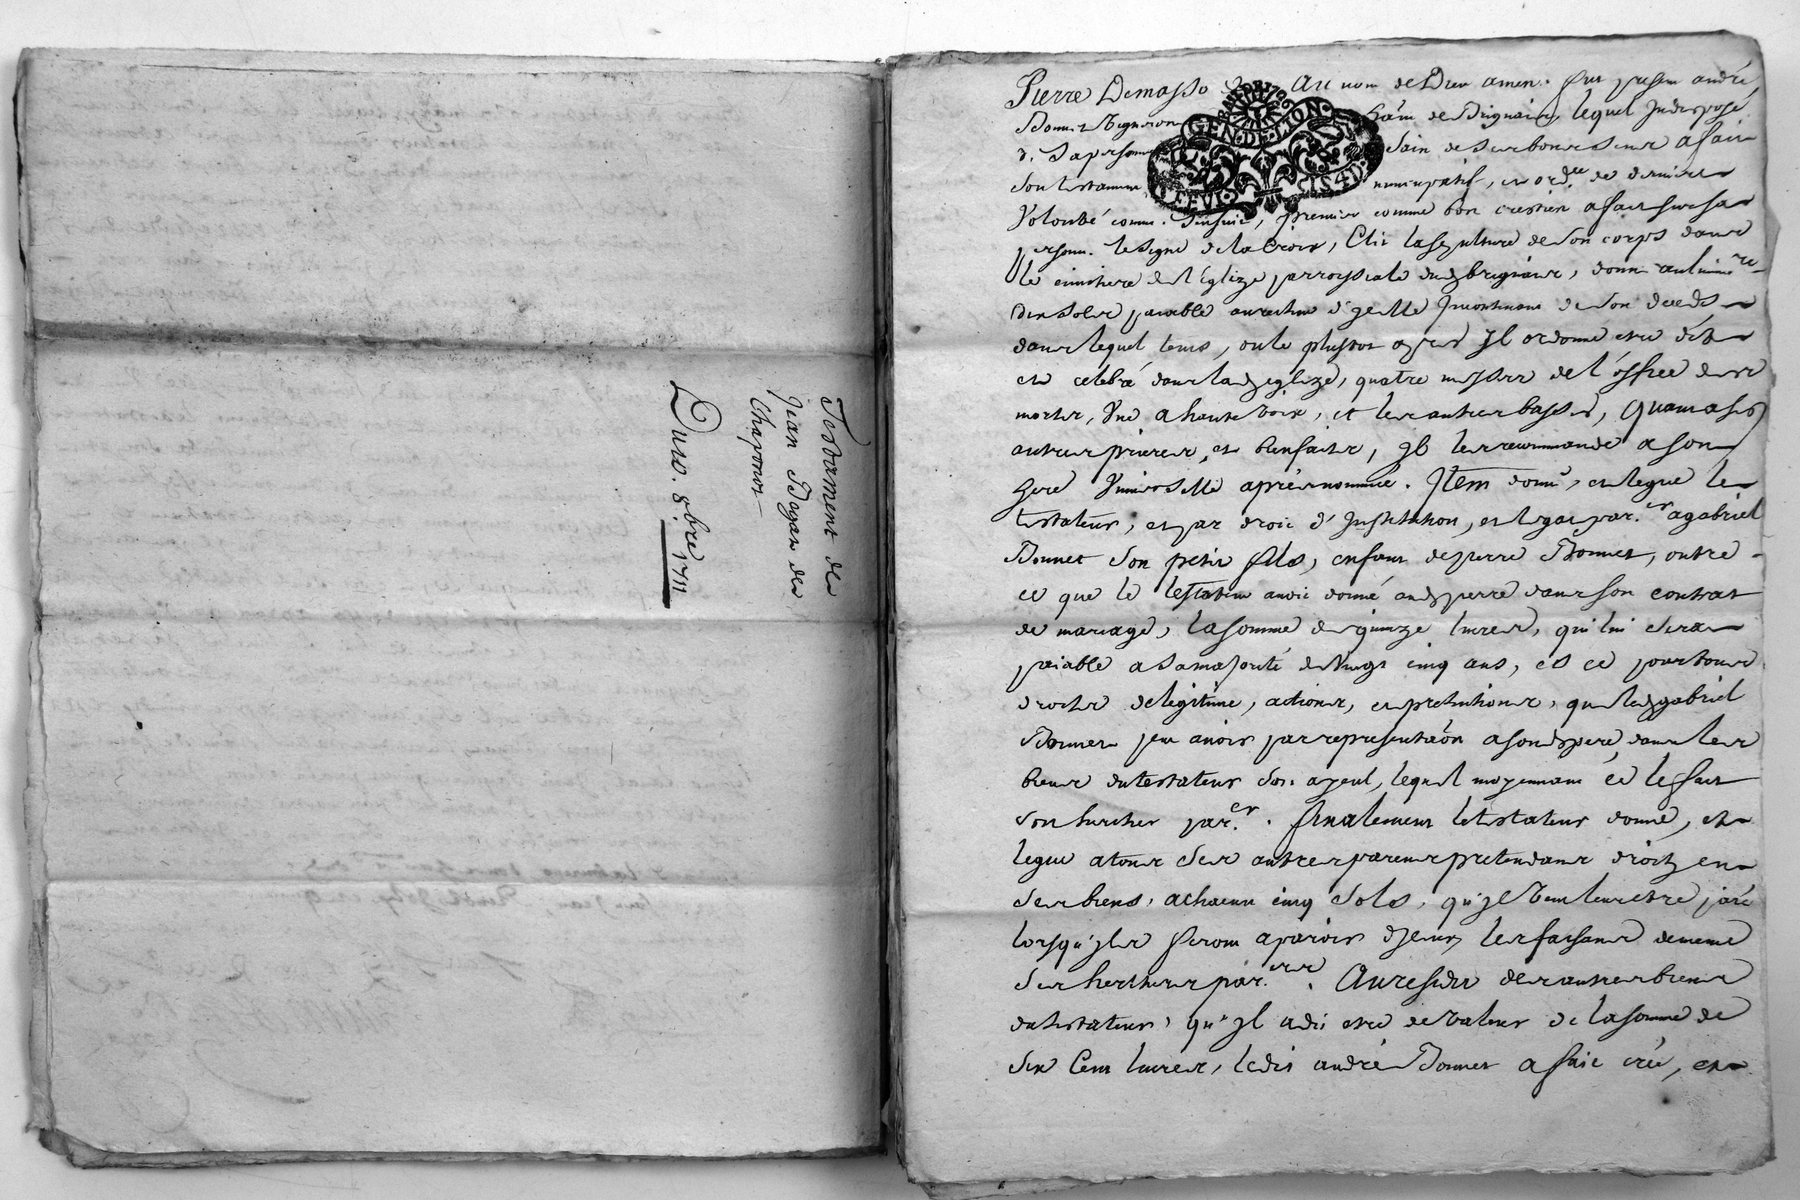 Testament de
Jean Bayan de
Chaponot
Duro. 8bre 1711
GEN. DE. LION.
Pierre Demasso Au nom de Dieu amen. fut present andré
Bonnet Vigneron de Brignais, lequel Indisposé
de sa personne sain de ses bons sens a fait
son testament nuncupatif, et ordre de derniere
Volonté comme s'ensuit, premier comme bon crestien a fait sur sa
personne le signe de la Croix, Elit la sepulture de son corps dans
le cimitiere de l'Eglize parroissiale dud brignais, donne
dix sols paiable de son decedz
dans lequel tems, ou le plustot apres Jl ordonne etre dit
et celebré dans lad eglize, quatre messes de l'office des
morts, Une a haute voix, et les autres basses, Quant a ses
autres prieres, et bienfaits, Jl les recommande a son
here Universelle aprés nommée. Item donne, et legue le
testateur, et par droit d'Institution, et legat par.er a gabriel
Bonnet son petit fils, enfant de pierre Bonnet, outre
ce que le testateur avoit donné aud pierre dans son contrat
de mariage, la somme de quinze livres, qui lui sera
paiable a sa majorité de vingt cinq ans, et ce pour tous
droits de legitime, actions, et pretentions, que led gabriel
Bonnet peut avoir par representaôn a sond pere, dans les
biens du testateur son ayeul, lequel moyennant ce le fait
son heritier par.er. finalement le testateur donne, et
legue a tous ses autres parens pretendans droit en
ses biens, a chacun cinq sols, qu'Jl veut leur etre paié
lorsqu'Jls feront aparoir d'Jceux les faisans de meme
ses heritiers par.ers. Au residu des autres biens
du testateur, qu'Jl a dit etre de valeur de la somme de
six Cent livres, ledit andré Bonnet a fait créé, et